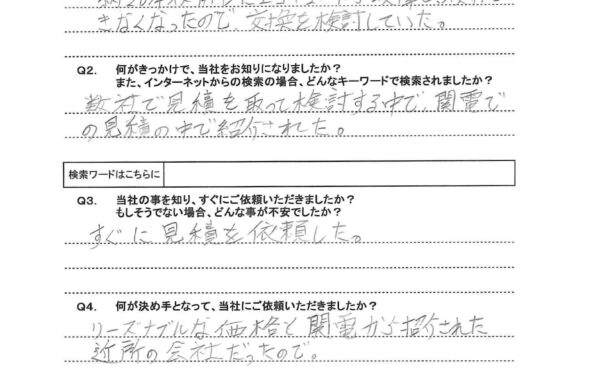 きなくなったので、交換を検討していた。
Q2. 何がきっかけで、当社をお知りになりましたか?
また、インターネットからの検索の場合、どんなキーワードで検索されましたか?
数社で見積を取って検討する中で、関電で
の見積の中で紹介された。
検索ワードはこちらに
Q3. 当社の事を知り、すぐにご依頼いただきましたか?
もしそうでない場合、どんな事が不安でしたか?
すぐに見積を依頼した。
Q4. 何が決め手となって、当社にご依頼いただきましたか?
リーズナブルな価格と関電から紹介された
近所の会社だったので。